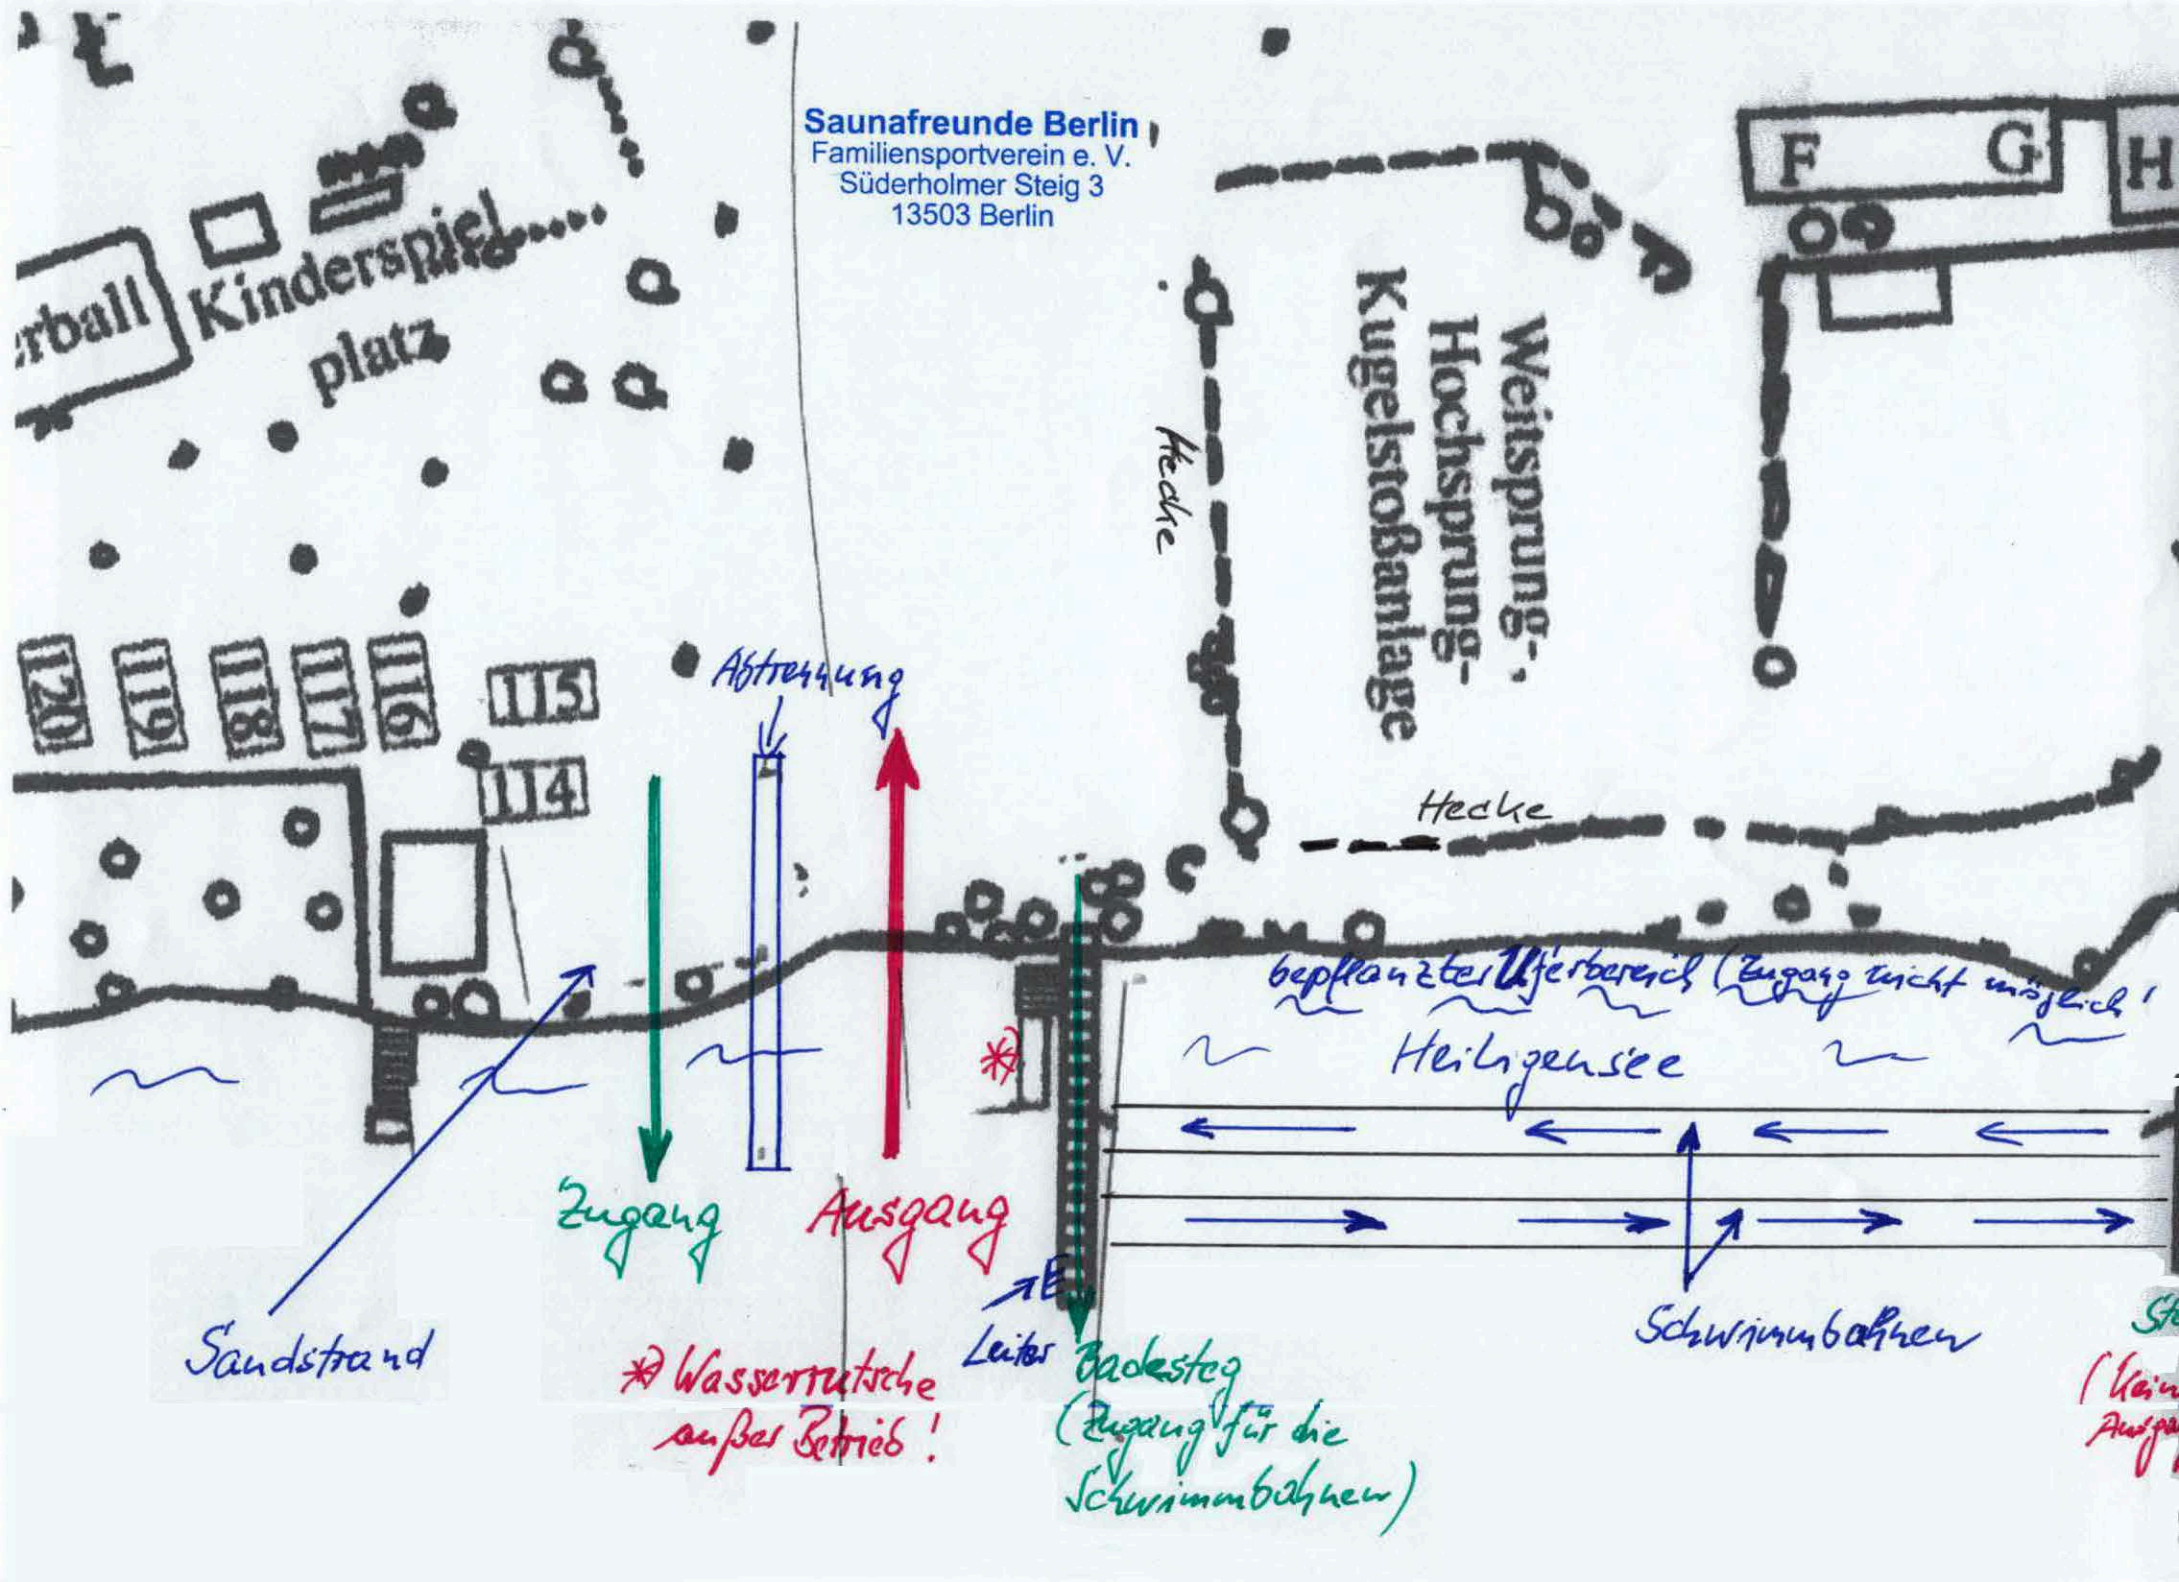 Saunafreunde Berlin
Familiensportverein e. V.
Süderholmer Steig 3
13503 Berlin
F G H
erball
Kinderspiel
platz
Weitsprung-,
Hochsprung-
Kugelstoßanlage
Hecke
120 119 118 117 116 115
114
Abtrennung
Hecke
bepflanzter Uferbereich (Zugang nicht möglich!
Heiligensee
*)
Zugang
Ausgang
Sandstrand
Leiter
Schwimmbahnen
*) Wasserrutsche
außer Betrieb!
Badesteg
(Zugang für die
Schwimmbahnen)
(Kein